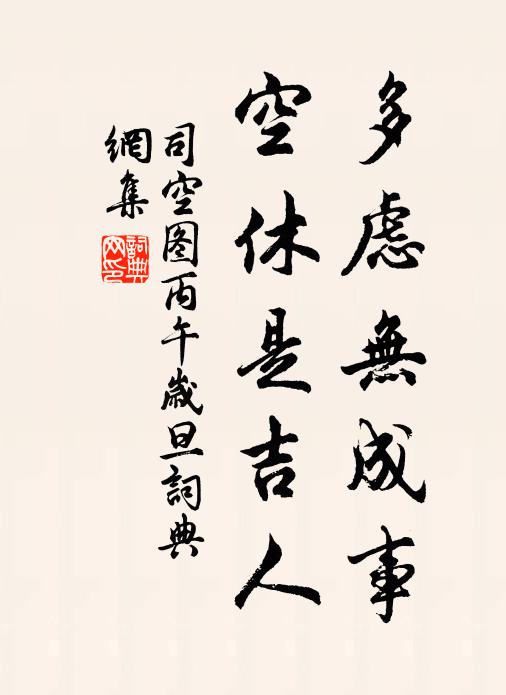 多慮無成事
空休是吉人
司空图丙午歲旦詞典
網集
詞典
网印